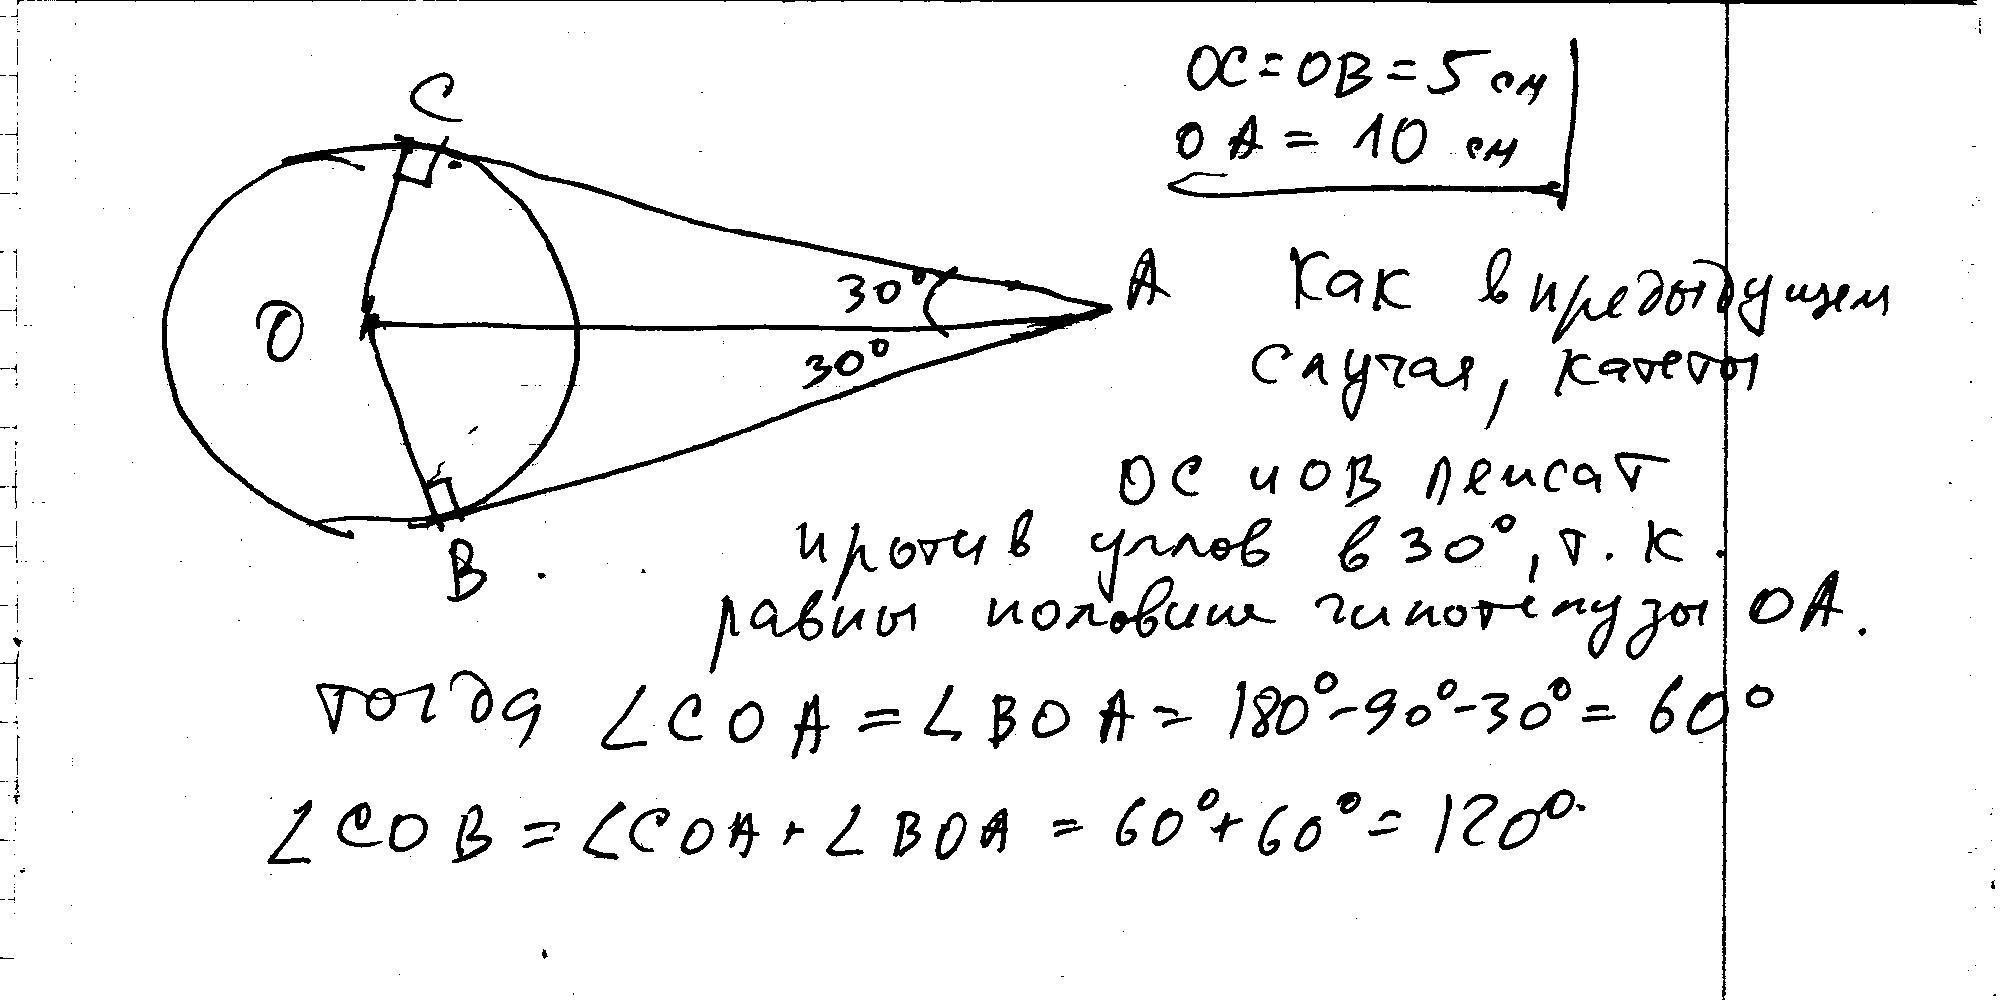 C
OC = OB = 5 см
OA = 10 см
30°
A
O
30°
B
Как в предыдущем
случая, катеты
OC и OB лежат
против углов в 30°, т. к.
равны половине гипотенузы OA.
тогда ∠COA = ∠BOA = 180° - 90° - 30° = 60°
∠COB = ∠COA + ∠BOA = 60° + 60° = 120°.